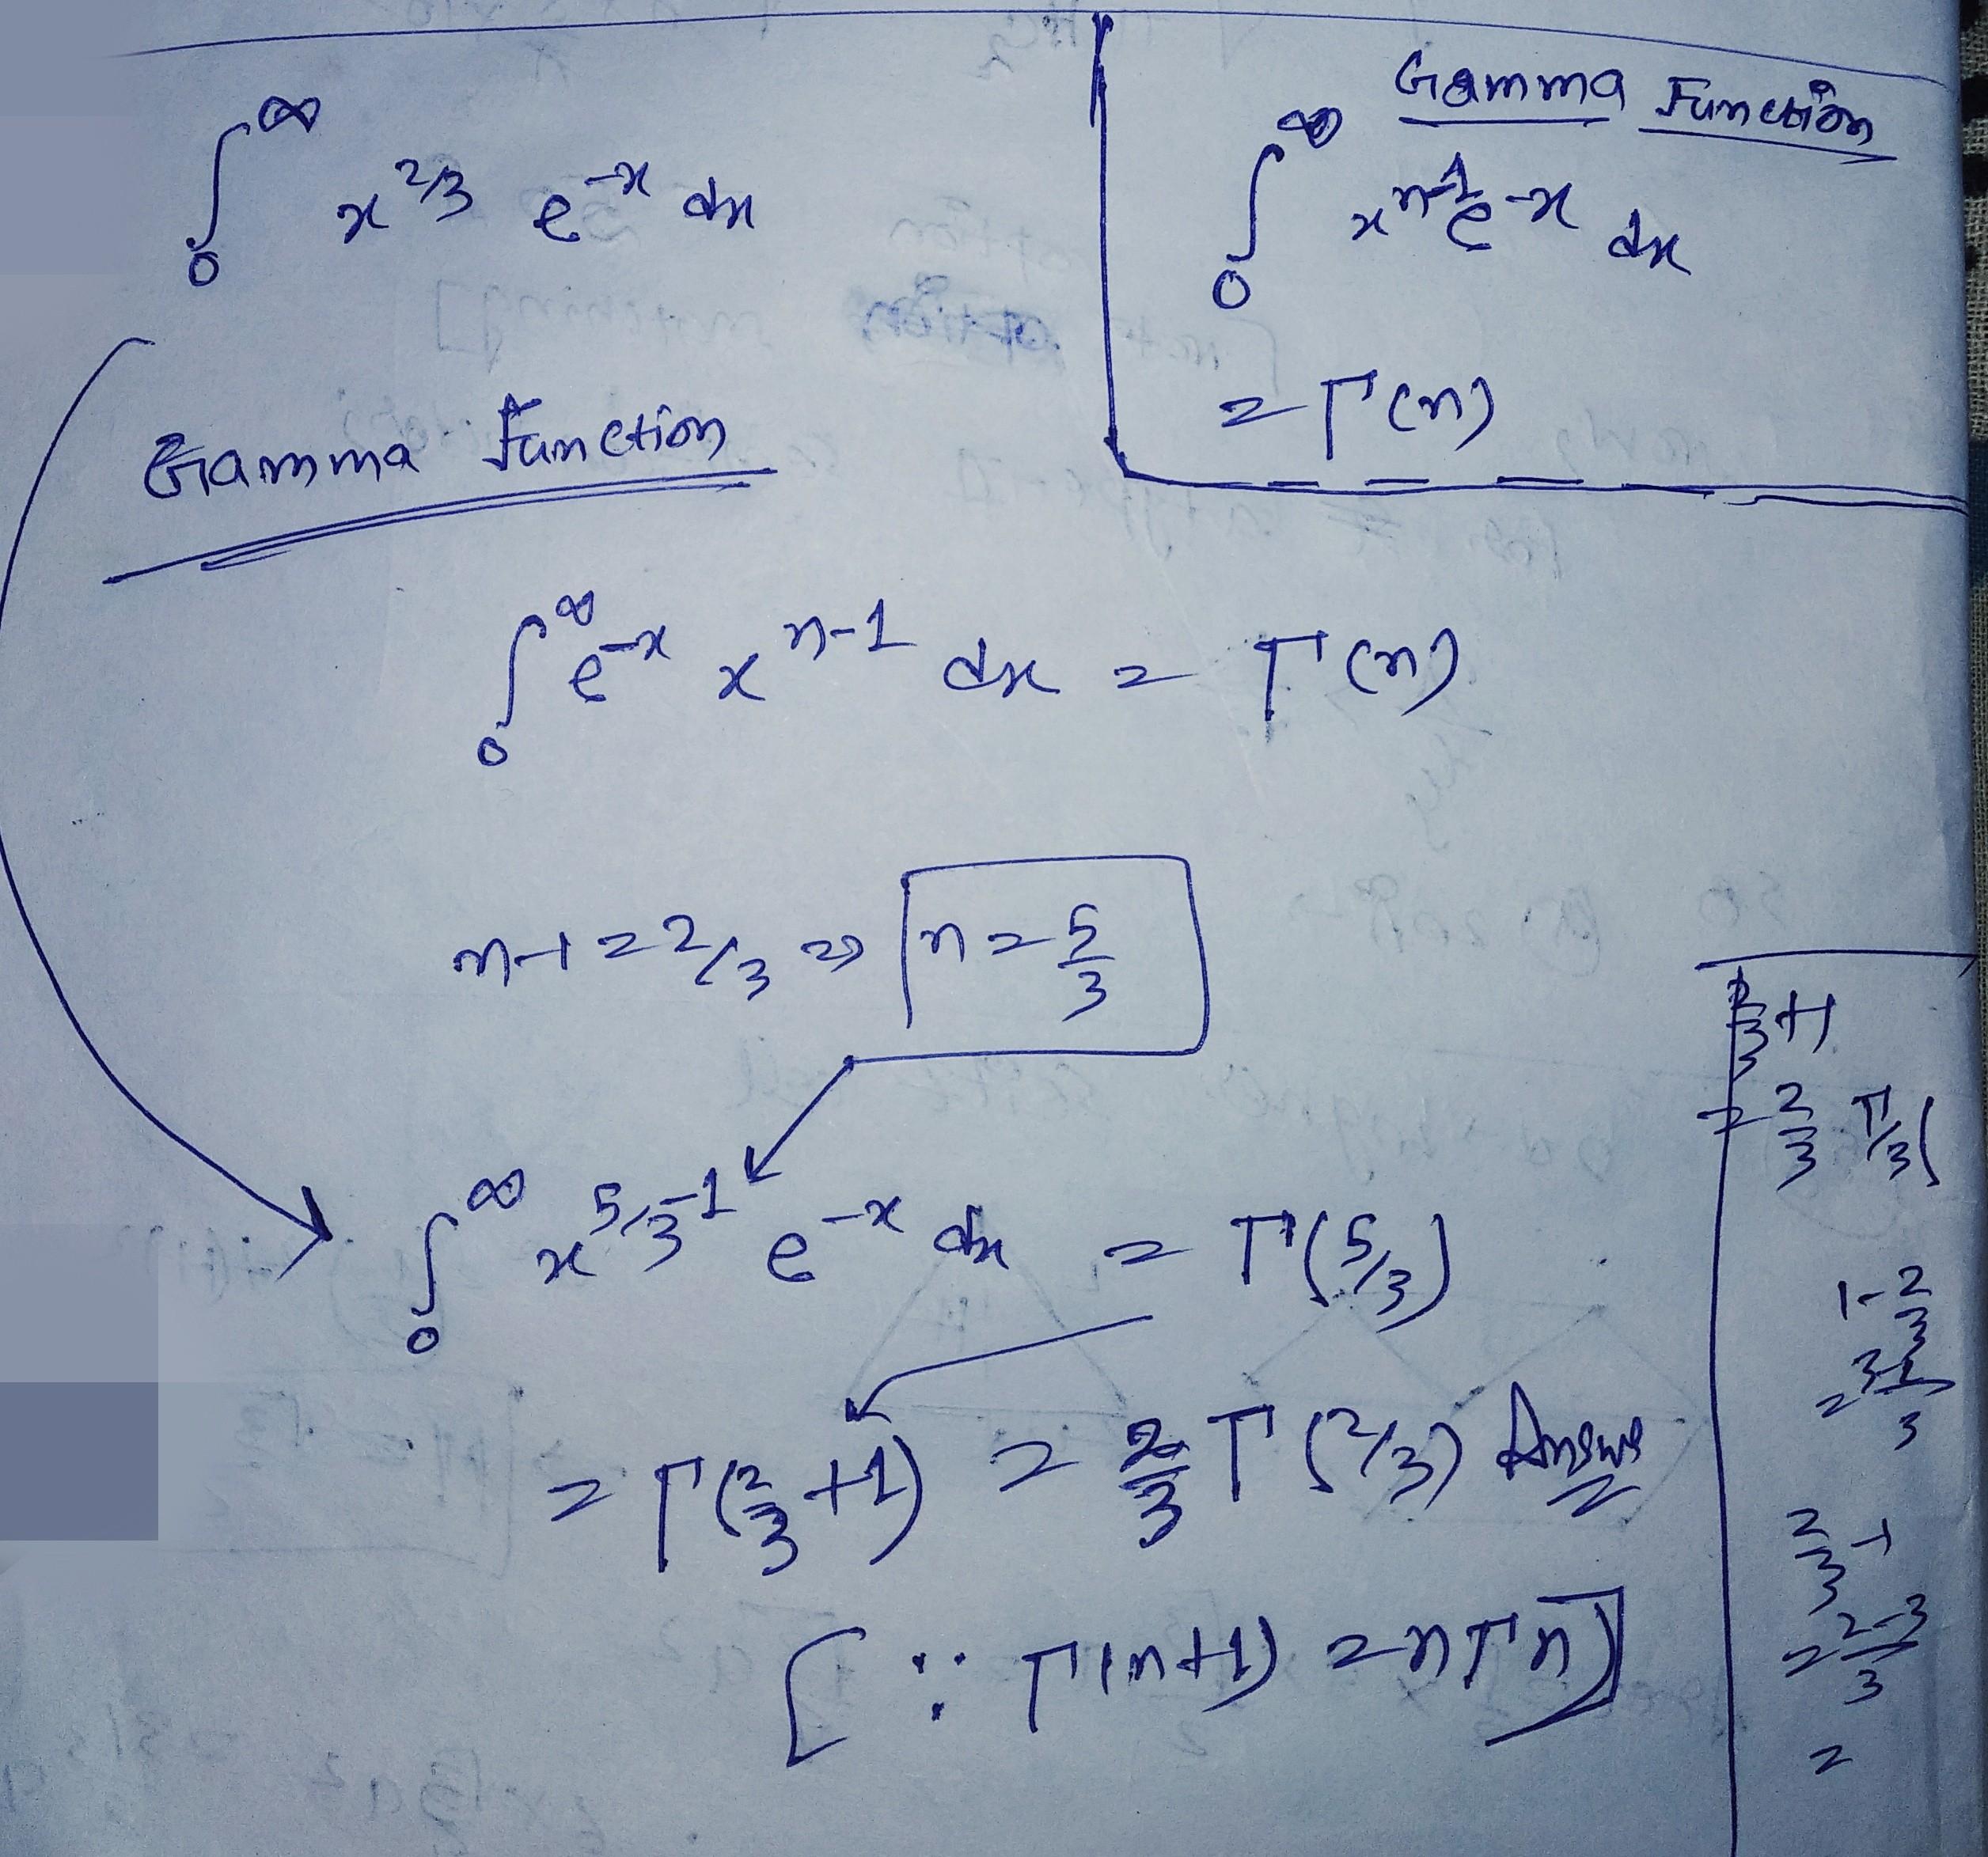 ∫₀^∞ x^{2/3} e^{-x} dx
Gamma Function
∫₀^∞ x^{n-1} e^{-x} dx
= Γ(n)
Gamma Function
∫₀^∞ e^{-x} x^{n-1} dx = Γ(n)
n-1 = 2/3 ⇒ n = 5/3
∫₀^∞ x^{5/3-1} e^{-x} dx = Γ(5/3)
= Γ(2/3 + 1) = 2/3 Γ(2/3) Answer
[∵ Γ(n+1) = nΓn]
2/3 + 1
= 2/3 Γ/3(
1 - 2/3
2/3 - 1
= 2-3/3
=